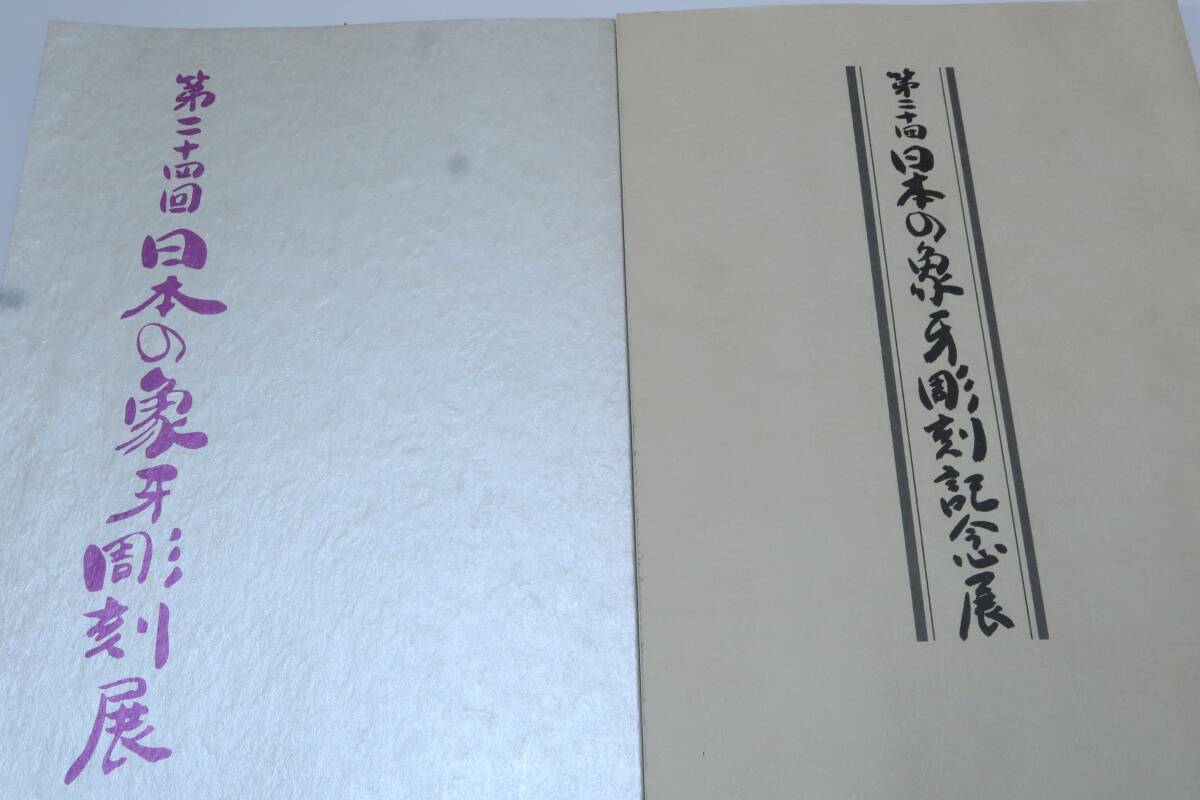 第二十四回日本の象牙彫刻展
第二十回日本の象牙彫刻記念展